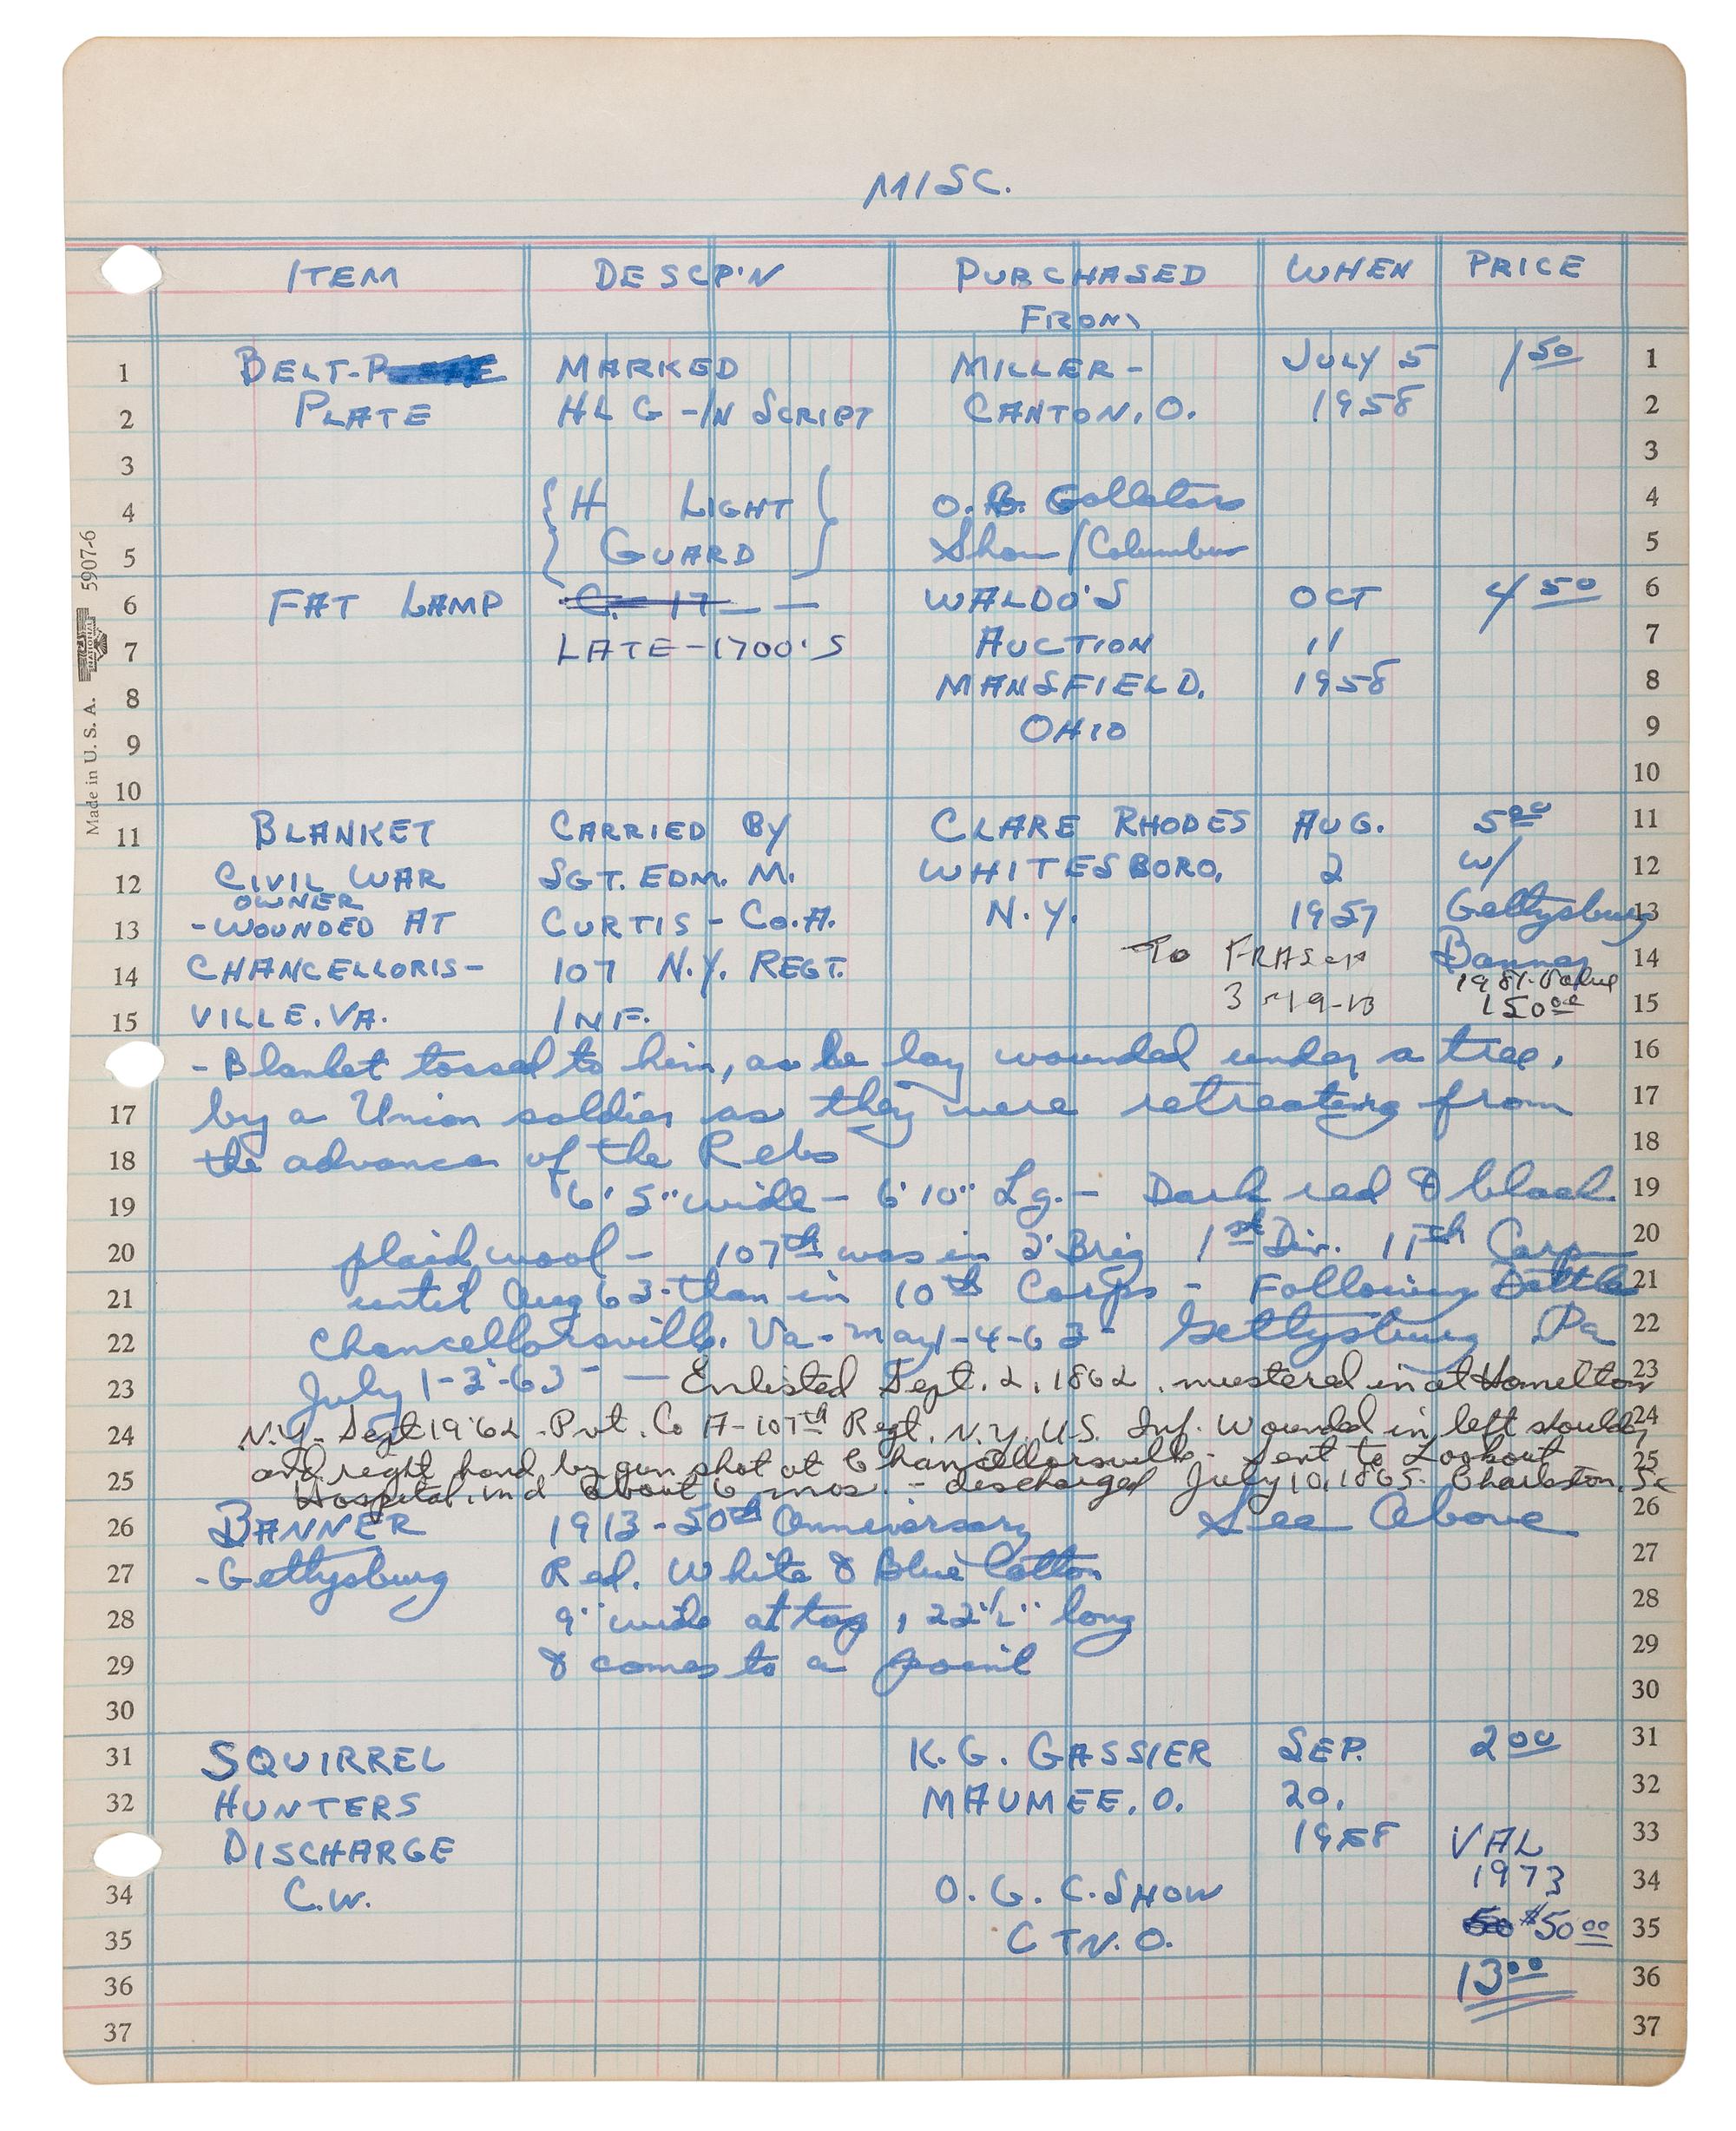 MISC.
ITEM DESCP'N PURCHASED WHEN PRICE
FROM
1 BELT-P MARKED MILLER- JULY 5 1 50 1
2 PLATE HLG-IN SCRIPT CANTON, O. 1958 2
3 3
4 { H LIGHT } O. G. Collectors 4
5 GUARD Show/Columbus 5
6 FAT LAMP C. 17 — — WALDO'S OCT 4 50 6
7 LATE-1700'S AUCTION 11 7
8 MANSFIELD, 1958 8
9 OHIO 9
10 10
11 BLANKET CARRIED BY CLARE RHODES AUG. 5 00 11
12 CIVIL WAR SGT. EDM. M. WHITESBORO, 2 w/ 12
OWNER
13 -WOUNDED AT CURTIS - CO.A. N.Y. 1957 Gettysburg 13
14 CHANCELLORIS- 107 N.Y. REGT. To FRASER Banner 14
1981-Value
15 VILLE, VA. INF. 3-19-13 150 00 15
- Blanket tossed to him, as he lay wounded under a tree, 16
17 by a Union soldier as they were retreating from 17
18 the advance of the Rebs 18
19 6'5" wide - 6'10" Lg. - Dark red & black 19
20 plaid wool - 107th was in 2' Brig 1st Div. 11th Corp 20
21 until Aug 63-then in 10th Corps - Following Battle 21
22 Chancellorsville, Va - May 1-4-63 - Gettysburg Pa 22
23 July 1-3-63 - — Enlisted Sept. 2, 1862, mustered in at Hamelton 23
24 N.Y. Sept 19'62 - Pvt. Co A-107th Regt. N.Y. U.S. Inf. Wounded in left shoulder 24
and right hand by gun shot at Chancellorsville - sent to Lookout 25
25 Hospital, Md about 6 mos. - discharged July 10, 1865. Charleston, Sc
26 BANNER 1913-50th Anniversary See Above 26
27 -Gettysburg Red, White & Blue Cotton 27
28 9" wide at top, 22½" long 28
29 & comes to a point 29
30 30
31 SQUIRREL K.G. GASSIER SEP. 2 00 31
32 HUNTERS MAUMEE, O. 20, 32
DISCHARGE 1958 VAL 33
34 C.W. O.G.C. SHOW 1973 34
35 CTN. O. 50 $50 00 35
36 13 00 36
37 37
Made in U.S.A. NATIONAL 5907-6